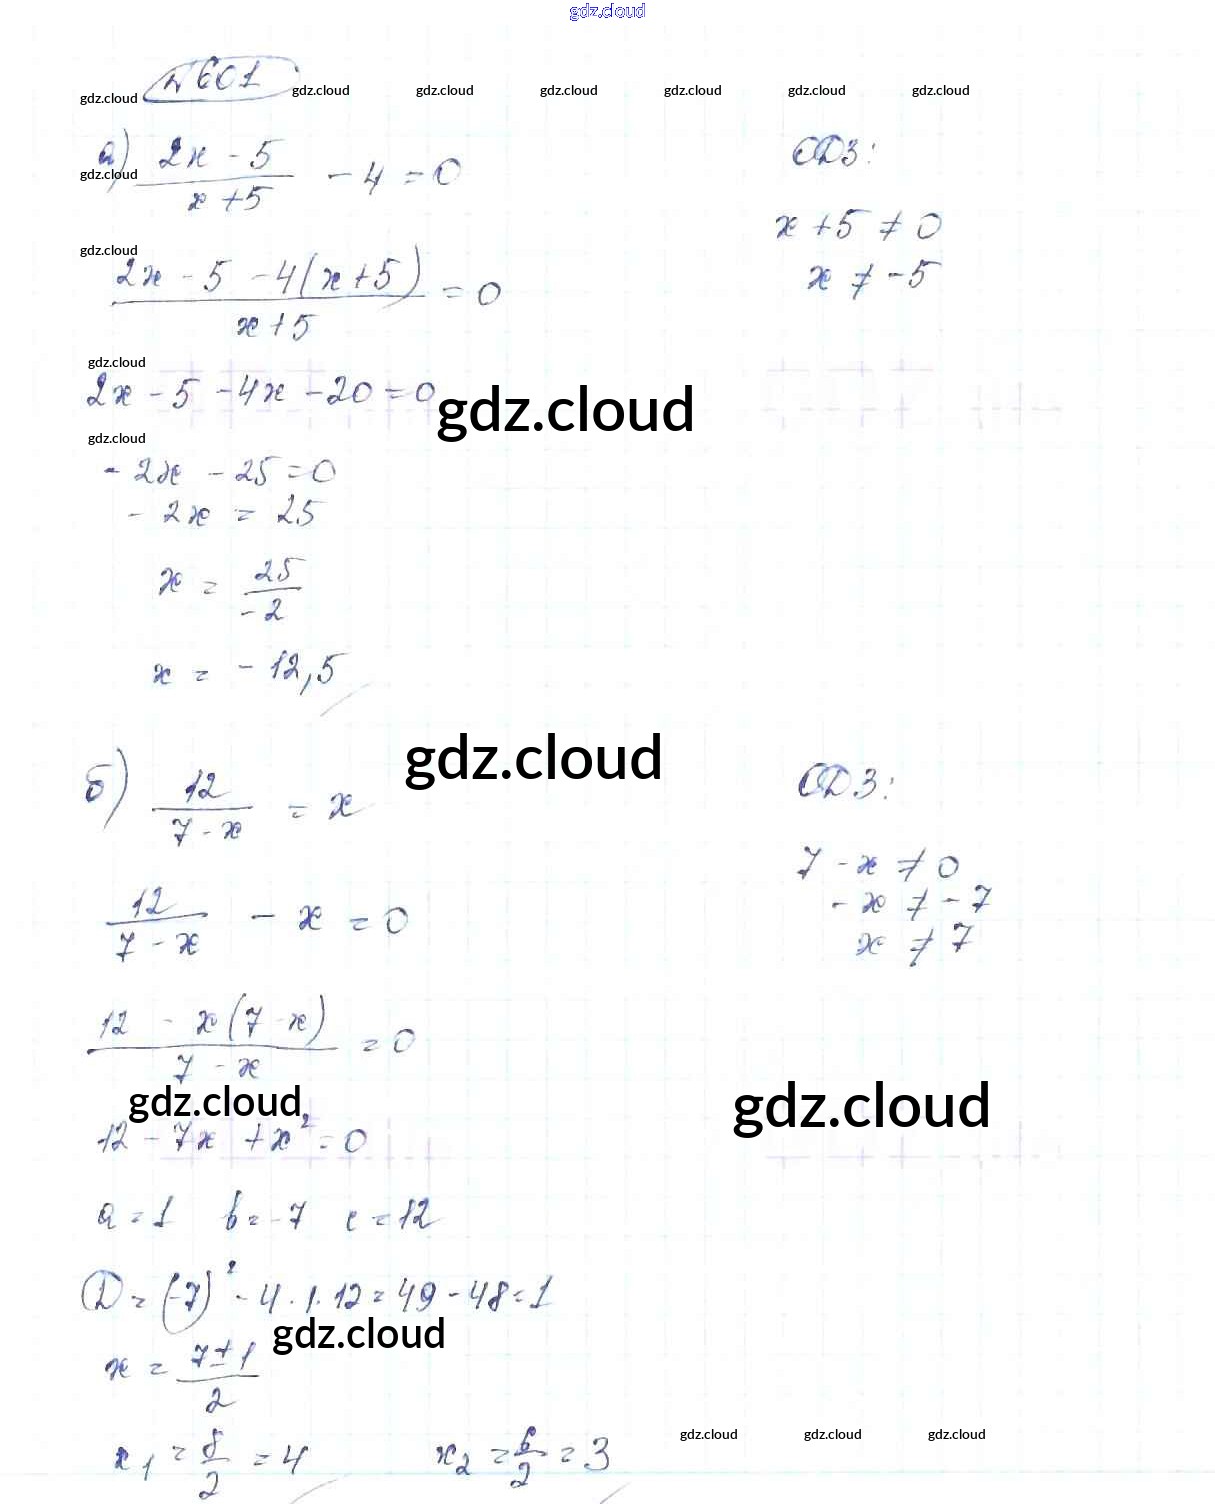 gdz.cloud
№ 601
gdz.cloud gdz.cloud gdz.cloud gdz.cloud gdz.cloud gdz.cloud gdz.cloud
а) (2x - 5)/(x + 5) - 4 = 0
ОДЗ:
gdz.cloud
x + 5 ≠ 0
x ≠ -5
gdz.cloud
(2x - 5 - 4(x + 5))/(x + 5) = 0
gdz.cloud
2x - 5 - 4x - 20 = 0
gdz.cloud
gdz.cloud
- 2x - 25 = 0
- 2x = 25
x = 25/-2
x = - 12,5
gdz.cloud
б) 12/(7 - x) = x
ОДЗ:
7 - x ≠ 0
- x ≠ - 7
x ≠ 7
12/(7 - x) - x = 0
(12 - x(7 - x))/(7 - x) = 0
gdz.cloud
gdz.cloud
12 - 7x + x² = 0
a = 1 b = -7 c = 12
D = (-7)² - 4 · 1 · 12 = 49 - 48 = 1
gdz.cloud
x = (7 ± 1)/2
x₁ = 8/2 = 4 x₂ = 6/2 = 3
gdz.cloud gdz.cloud gdz.cloud